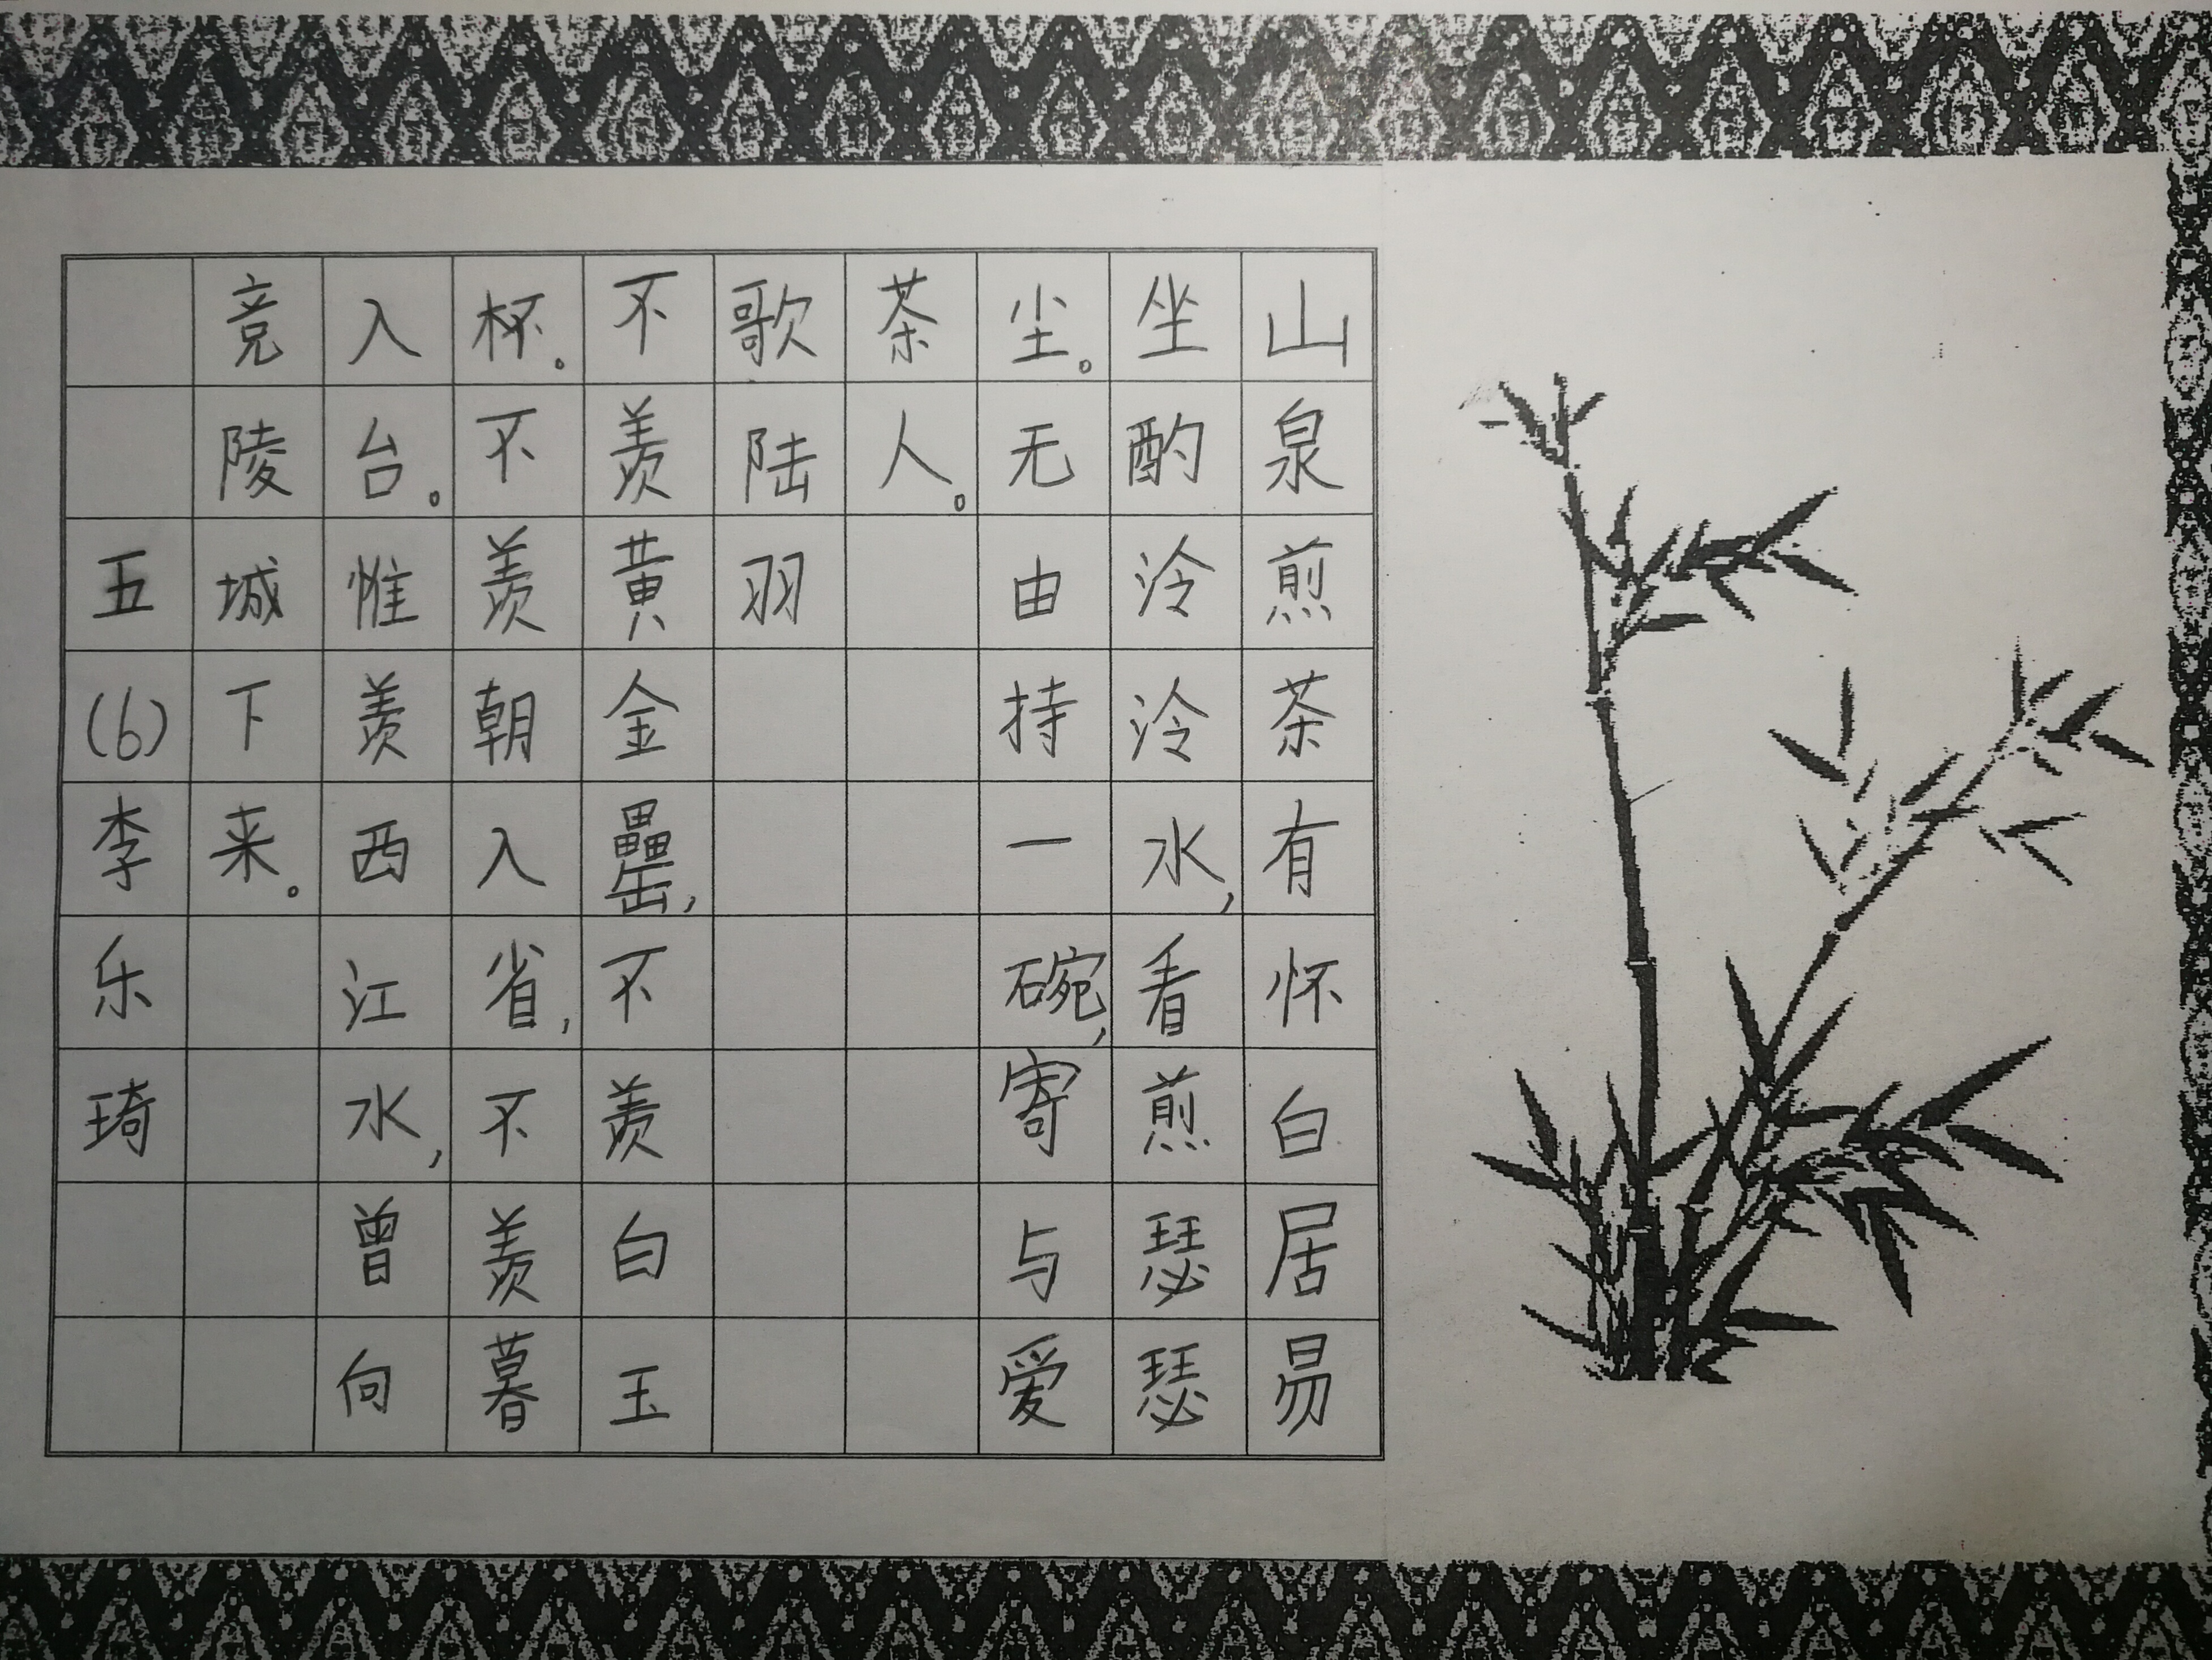 山泉煎茶有怀白居易
坐酌泠泠水,看煎瑟瑟
尘。无由持一碗,寄与爱
茶人。
歌陆羽
不羡黄金罍,不羡白玉
杯。不羡朝入省,不羡暮
入台。惟羡西江水,曾向
竟陵城下来。
五(6)李乐琦